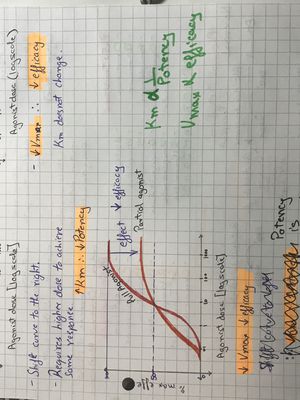 Agonist dose [log scale]
- Shift curve to the right.
- Requires higher dose to achieve
same response.
↑Km ∴ ↓Potency
Agonist dose [log scale]
- ↓Vmax ∴ ↓efficacy
Km doesnot change.
Km α 1/Potency
Vmax α efficacy
% max
100
50
0
Full Agonist
↓effect ↓efficacy
Partial agonist
Agonist dose [log scale]
↓Vmax ↓efficacy
Potency
is